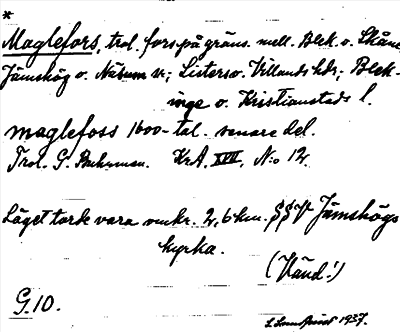 *
Maglefors, trol. fors på gräns. mell. Blek. o. Skåne
Jämshög o. Näsum sr; Listers o. Villands hdr; Blek-
inge o. Kristianstads l.
maglefoss 1600-tal. senare del.
Trol. G. Buhrman. KrA. XVII, N:o 12.
Läget torde vara omkr. 2,6 km. SSV Jämshögs
kyrka.
(Vänd!)
G.10.
1937.